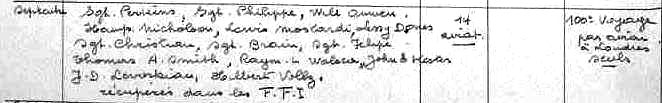 Septembre Sgt. Perkins, Sgt. Philippe, Will
Hamp. Nicholson, Lewis Moscardi, Lessy Dones
Sgt. Christian, Sgt. Brain, Sgt. Felipe
Thomas A. Smith, Raym. L. Walsea, John E
J.D. Hilbert
récupérés dans les F.F.I
14
aviat.
100e Voyage
par avion
à Londres
seuls